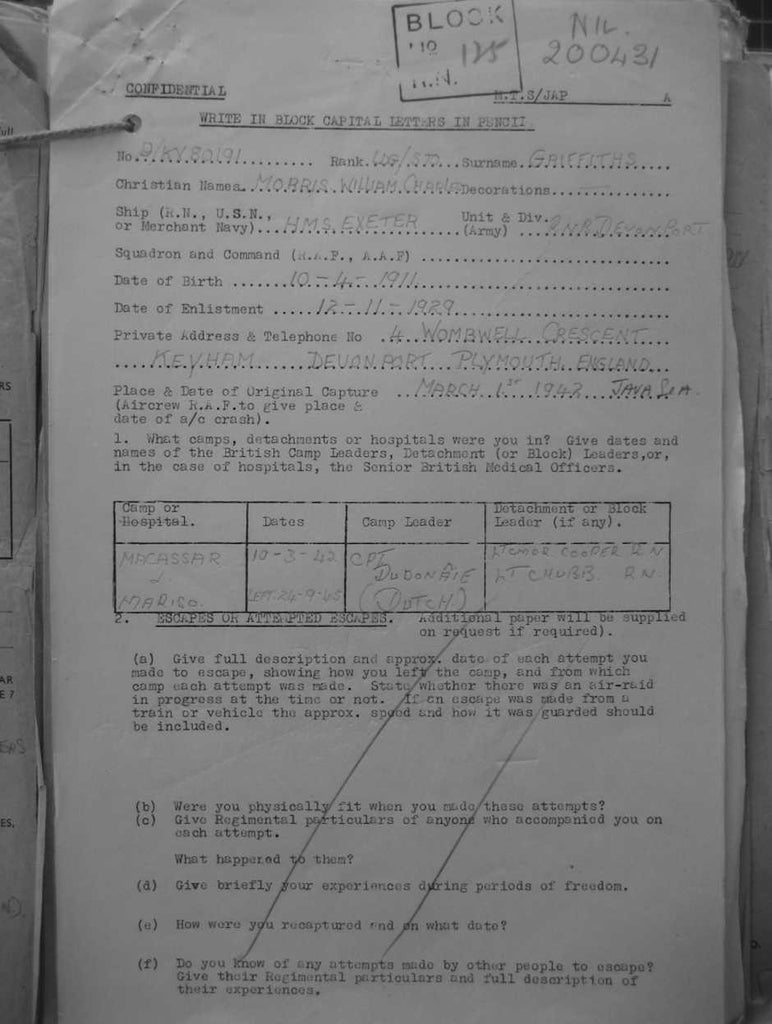 BLOCK
NO 125
R.N.
NIL
200431
CONFIDENTIAL
M.I.9/JAP A
WRITE IN BLOCK CAPITAL LETTERS IN PENCIL.
No. D/KX.80191 Rank. LDG/STO. Surname. GRIFFITHS
Christian Names. MORRIS. WILLIAM. CHARLES Decorations
Ship (R.N., U.S.N., or Merchant Navy) H.M.S. EXETER Unit & Div. (Army) R.N.B. DEVONPORT
Squadron and Command (R.A.F., A.A.F)
Date of Birth 10-4-1911
Date of Enlistment 12-11-1929
Private Address & Telephone No 4. WOMBWELL CRESCENT
KEYHAM DEVONPORT PLYMOUTH. ENGLAND
Place & Date of Original Capture MARCH 1ST 1942 JAVA SEA
(Aircrew R.A.F. to give place &
date of a/c crash).
1. What camps, detachments or hospitals were you in? Give dates and
names of the British Camp Leaders, Detachment (or Block) Leaders, or,
in the case of hospitals, the Senior British Medical Officers.
Camp or Hospital. Dates Camp Leader Detachment or Block Leader (if any).
MACASSAR 10-3-42 CPT LTCMDR COOPER R.N
LT CHUBB. R.N.
MARISO. LEFT 24-9-45 (DUTCH)
2. ESCAPES OR ATTEMPTED ESCAPES. Additional paper will be supplied
on request if required).
(a) Give full description and approx. date of each attempt you
made to escape, showing how you left the camp, and from which
camp each attempt was made. State whether there was an air-raid
in progress at the time or not. If an escape was made from a
train or vehicle the approx. speed and how it was guarded should
be included.
(b) Were you physically fit when you made these attempts?
(c) Give Regimental particulars of anyone who accompanied you on
each attempt.
What happened to them?
(d) Give briefly your experiences during periods of freedom.
(e) How were you recaptured and on what date?
(f) Do you know of any attempts made by other people to escape?
Give their Regimental particulars and full description of
their experiences.